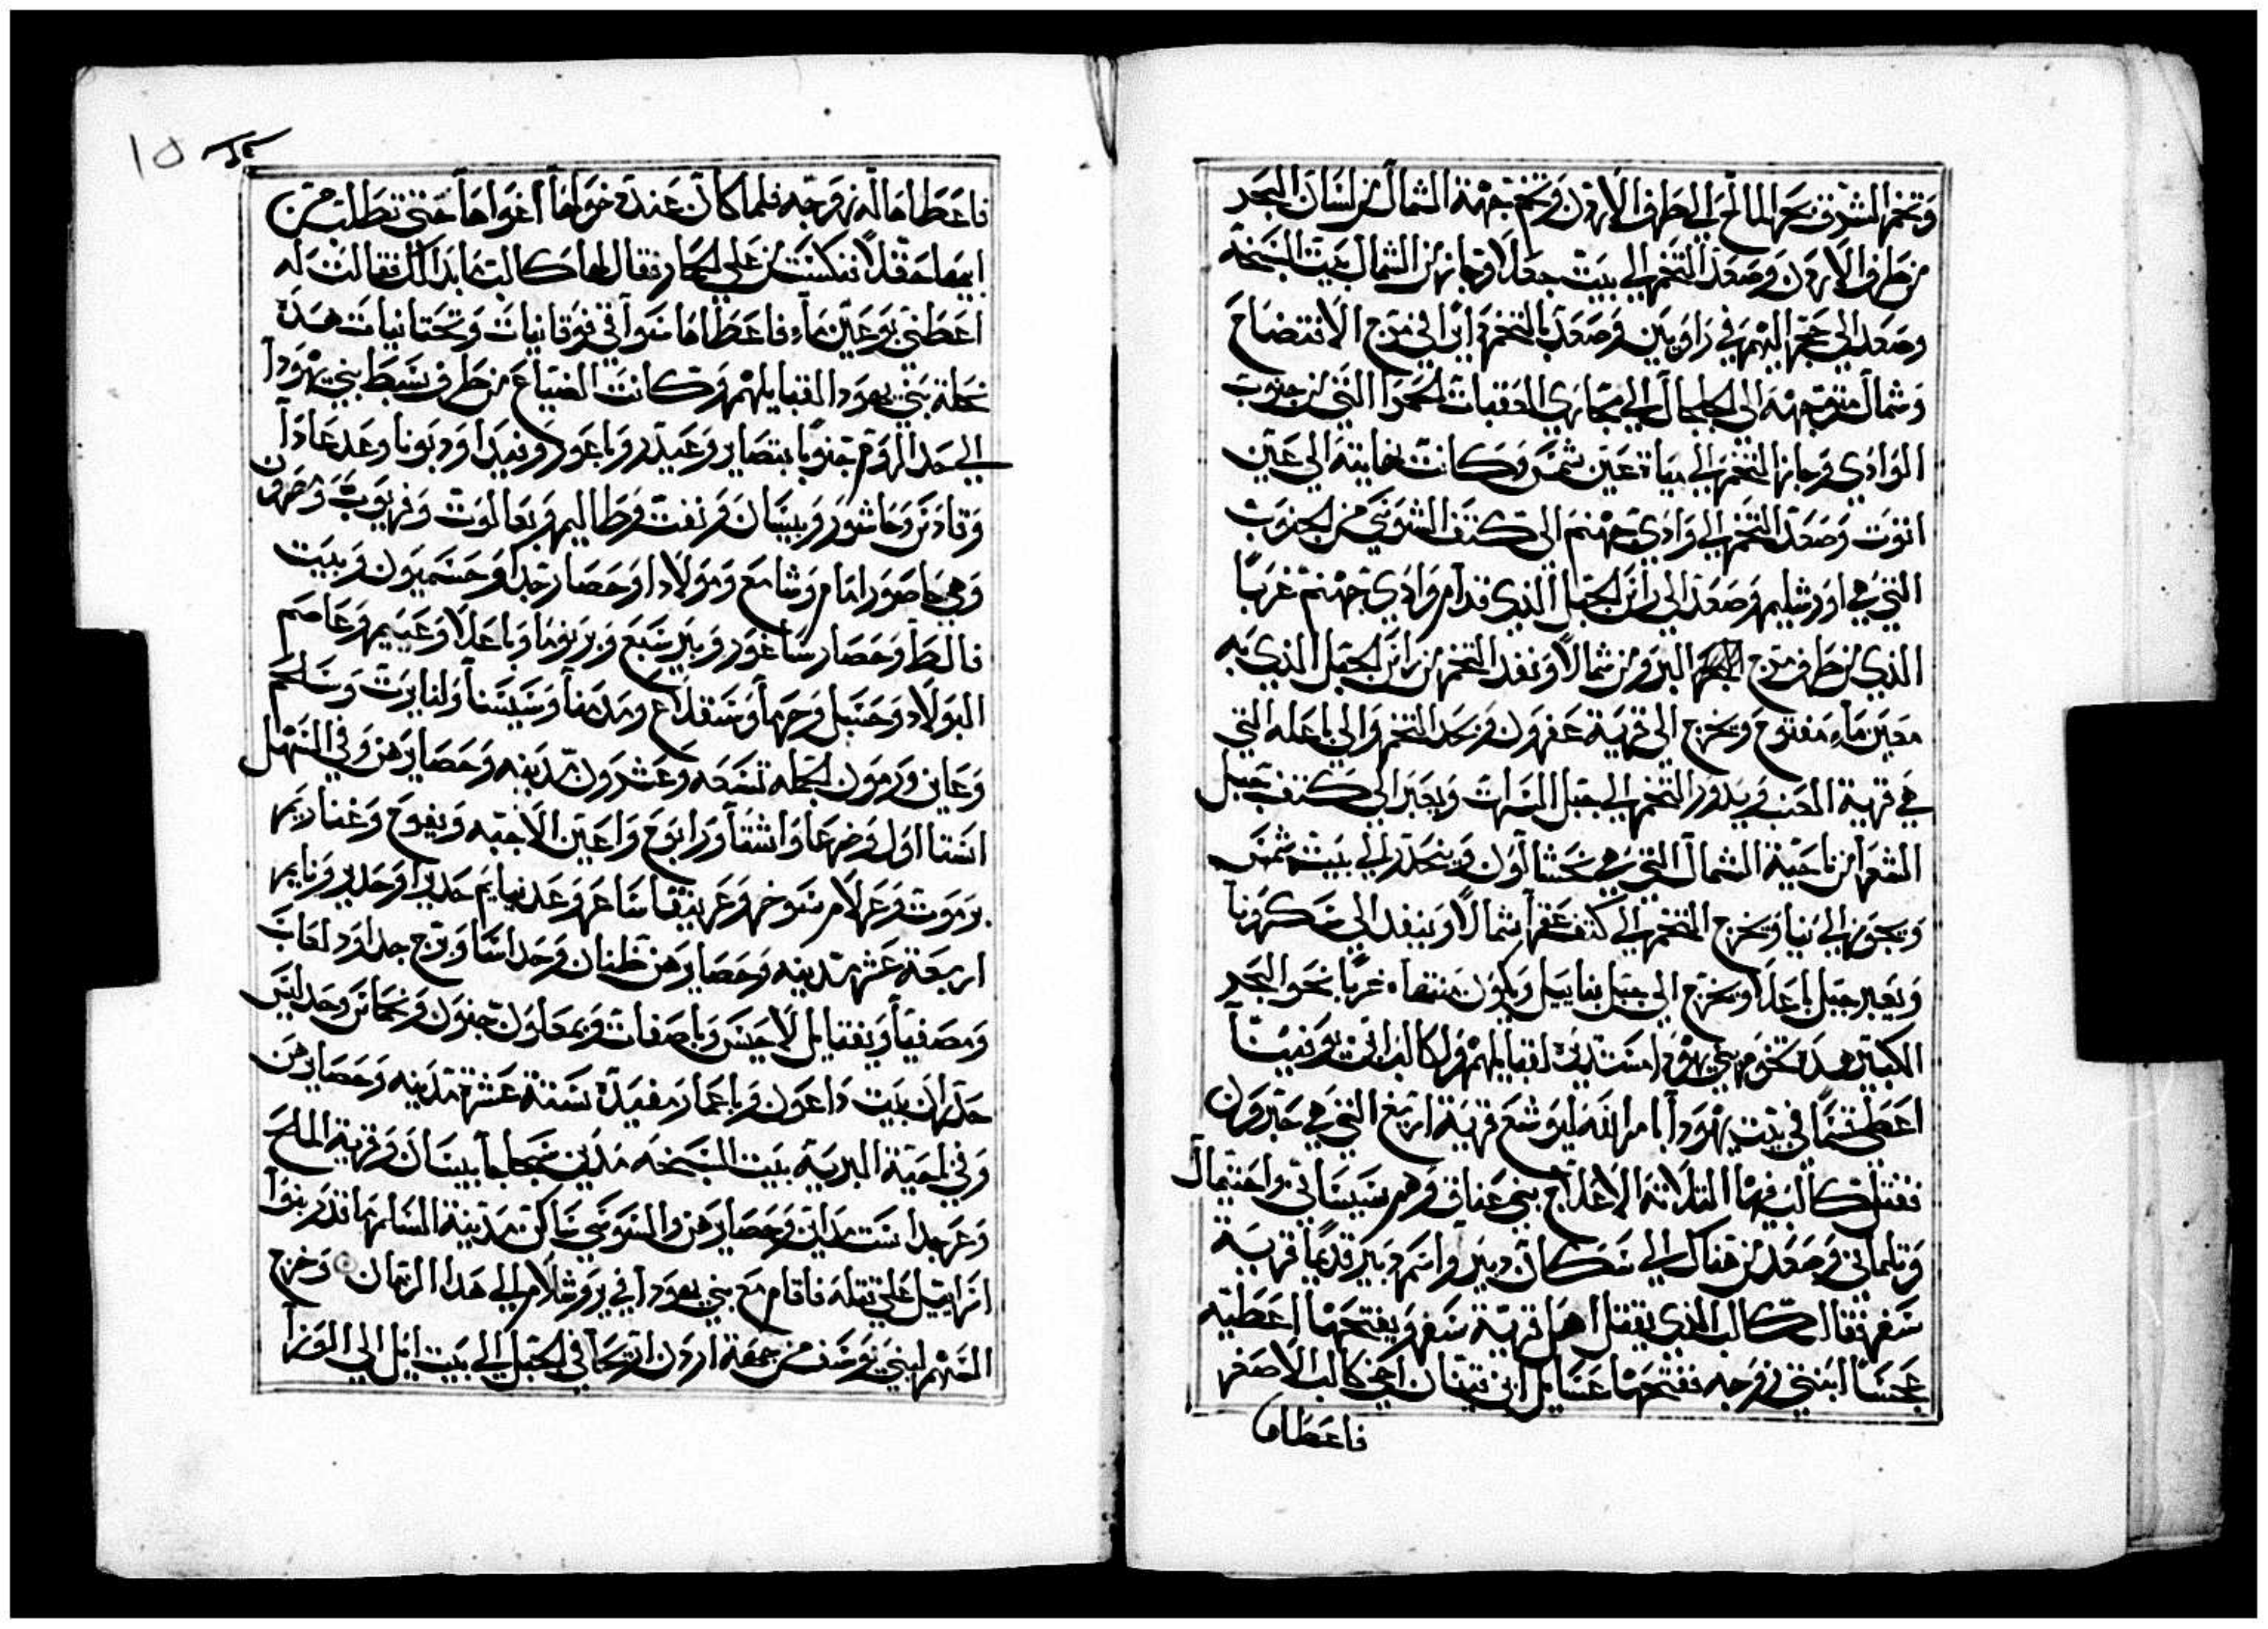 وتخم الشرق بحر المالح الى طرف الاردن وتخم جهة الشمال من لسان البحر
من طرف الاردن وصعد التخم الى بيت جعلا وجاز من الشمال بيت السبخة
وصعد الى حجر البهم في زاوبين وصعد بالتخم ايرا في مرج الافتضاح
وشمال متوجهه الى الجلجال الى مجازي العقبات الحمرا التي من جنوب
الوادي وجاز التخم الى مياة عين شمس وكانت نهايته الى عين
انوت وصعد التخم الى وادي جهنم الى كتف اليبوسي من الجنوب
التي هي اورشليم وصعد الى راس الجبل الذي قدام وادي جهنم غربا
الذي من طرف مرج البروس شمالا ونفد التخم من راس الجبل الذي به
معين ماء مفتوح ويخرج الى قرية عفرون ويحد التخم والى باعله التي
هي قرية العنب ويدور التخم الى جبل السرات ويعبر الى كتف جبل
الشعرا من ناحية الشمال التي هي خشالون وينحدر الى بيت شمس
ويجوز الى نيا ويخرج التخم الى كتف عقرا شمالا وينفد الى سكرونا
ويعبر جبل باعلا ويخرج الى جبل بناييل ويكون منتهاه غربا نحو البحر
الكبير هده تخوم بني يهودا مستديره لقبايلهم ولكالب ابن يوفنيا
اعطى قسما في بيت يهودا بامر الله ليوشع قرية اربع التي هي حبرون
فقتل كالب فيها التلاتة الاعلاج بني عناق وهم سيساني واحتيمال
وتلماني وصعد من هناك الى سكان دبير واسم دبير قديما قرية
سفر فقال كالب الذي يقتل اهل قرية سفر ويفتحها اعطيه
عجسا ابنتي زوجه ففتحها عتنايل ابن قينان اخي كالب الاصغر
فاعطاه
١٥
فاعطاها له زوجه فلما كان عند دخولها اغواها حتى تطلب من
ابيها حقلا فنكست من على الحمار فقال لها كالب ما بدا لك فقالت له
اعطني ينبوع عين ماء فاعطاها سواقي فوقانيات وتحتانيات هده
نحلة بني يهودا لقبايلهم وكانت الضياع من طرف سبط بني يهودا
الى حد الروم جنوبا بتصاير وعيدر وياعور وفيدا ودبونا وعدعادا
وقادس وحاشور وبيسان وزنفت وطاليم وبعالموت وقريوب وحصرون
وهي حاصور امام وشامع ومولادا وحصارجدا وحسميون وبيت
فالط وحصارساغور وبيرسبع وبريوها وباعلا وعييم وعاصم
البولاد وحسبل وحرما وسقلاغ ومدمنا وسيسنا ولنايرت وسلحم
وعاين ورمون الجمله تسعه وعشرون مدينه وحصايرهن وفي السهل
استااول وضرعا واشنا ورابوع واعين الاجبه ويفوح وعنا ديم
يرموت وعدلام وسوخر وعريقا ساعر وعدييايم حديرا وحدير وتايم
اربعة عشر مدينه وحصايرهن ظنان وحداسا وبرج جدا ودلعاب
ومصفيا ويفتايل لاحيس وباصفات ويمعلون جنون ونحماس وحدليس
حدران بيت داعون وباعمار مفيدة ستة عشرة مدينه وحصايرهن
وفي ناحية البرية بيت السبخه مدين سجاجا بيسان وقرية الملح
وعرجدا ست مداين وحصايرهن واليبوسي ساكن مدينة السلام ما قدر بنوا
اسراييل على قتله فاقام مع بني يهودا في يروشلام الى هدا الزمان وخرج
السهم لبني يوسف من جهة اردن اريحا في الجبل الى بيت ايل الى الوزا